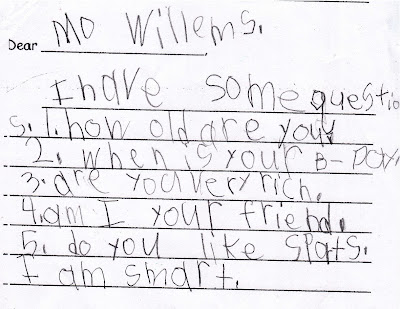 Dear Mo Willems.
I have some questio
s. 1. how old are you?
2. when is your B-Day.
3. are you very rich.
4. am I your friend.
5. do you like spots.
I am smart.